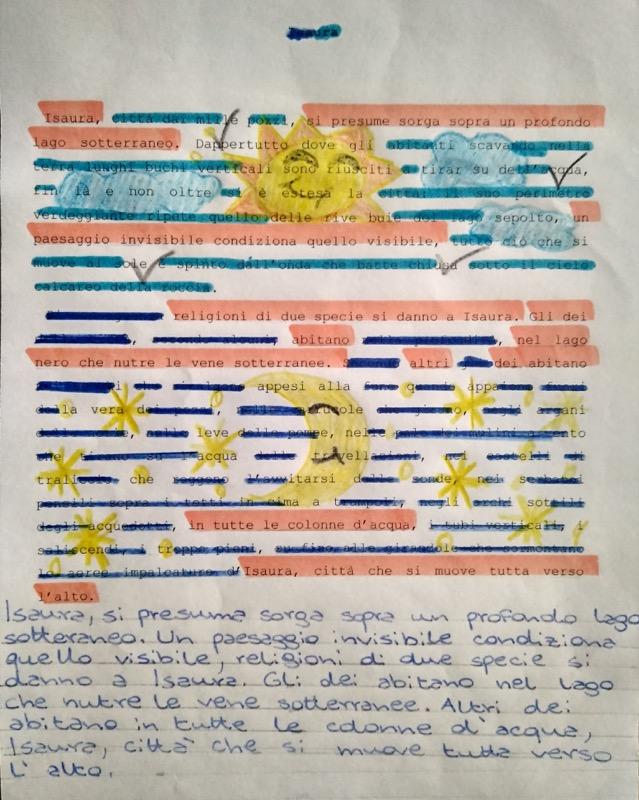 Isaura
Isaura, città dai mille pozzi, si presume sorga sopra un profondo
lago sotterraneo. Dappertutto dove gli abitanti scavando nella
terra lunghi buchi verticali sono riusciti a tirar su dell'acqua,
fin là e non oltre si è estesa la città: il suo perimetro
verdeggiante ripete quello delle rive buie del lago sepolto, un
paesaggio invisibile condiziona quello visibile, tutto ciò che si
muove al sole è spinto dall'onda che batte chiusa sotto il cielo
calcareo della roccia.
religioni di due specie si danno a Isaura. Gli dei
abitano nel lago
nero che nutre le vene sotterranee. altri dei abitano
che appesi alla fune quando appaiono fuori
della vera dei pozzi, nelle carrucole che girano, negli argani
nelle leve delle pompe, nelle pale dei mulini a vento
che su l'acqua delle trivellazioni, nei castelli di
traliccio che reggono l'avvitarsi delle sonde, nei serbatoi
pensili sopra i tetti in cima a trampoli, negli archi sottili
degli acquedotti, in tutte le colonne d'acqua, i tubi verticali, i
saliscendi, i troppo pieni, su fino alle girandole che sormontano
le aeree impalcature d'Isaura, città che si muove tutta verso
l'alto.
Isaura, si presume sorga sopra un profondo lago
sotteraneo. Un paesaggio invisibile condiziona
quello visibile, religioni di due specie si
danno a Isaura. Gli dei abitano nel lago
che nutre le vene sotterranee. Altri dei
abitano in tutte le colonne d'acqua,
Isaura, città che si muove tutta verso
l'alto.